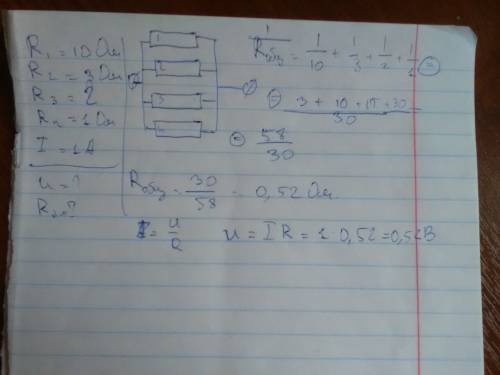 R₁ = 10 Ом
R₂ = 3 Ом
R₃ = 2
R₄ = 1 Ом
I = 1 А
u = ?
R = ?
1
2
3
4
1/Rобщ = 1/10 + 1/3 + 1/2 + 1/1 =
= (3 + 10 + 15 + 30)/30
= 58/30
Rобщ = 30/58 = 0,52 Ом
I = u/R u = I R = 1 0,52 = 0,52 В